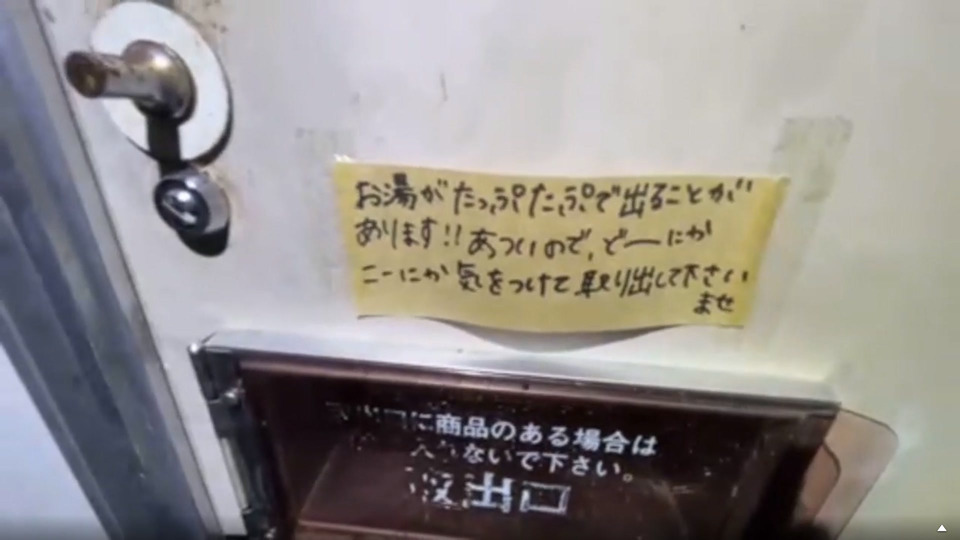 お湯がたっぷたっぷで出ることが
あります!!あついので、どーにか
こーにか気をつけて取り出して下さい
ませ
に商品のある場合は
ないで下さい。
取出口